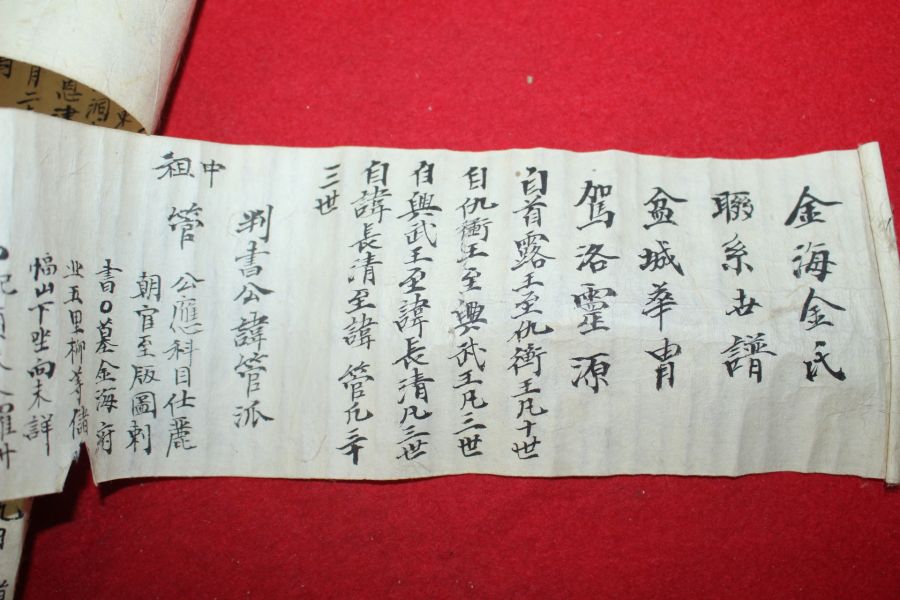 金海金氏
聯系世譜
盆城華冑
駕洛靈源
自首露王至仇衝王凡十世
自仇衝王至興武王凡三世
自興武王至諱長清凡三世
自諱長清至諱管凡三十
三世
判書公諱管派
中
祖管
公應科目仕麗
朝官至版圖刺
書〇墓金海府
北五里柳等儲
幅山下坐向未詳
月二
恩津